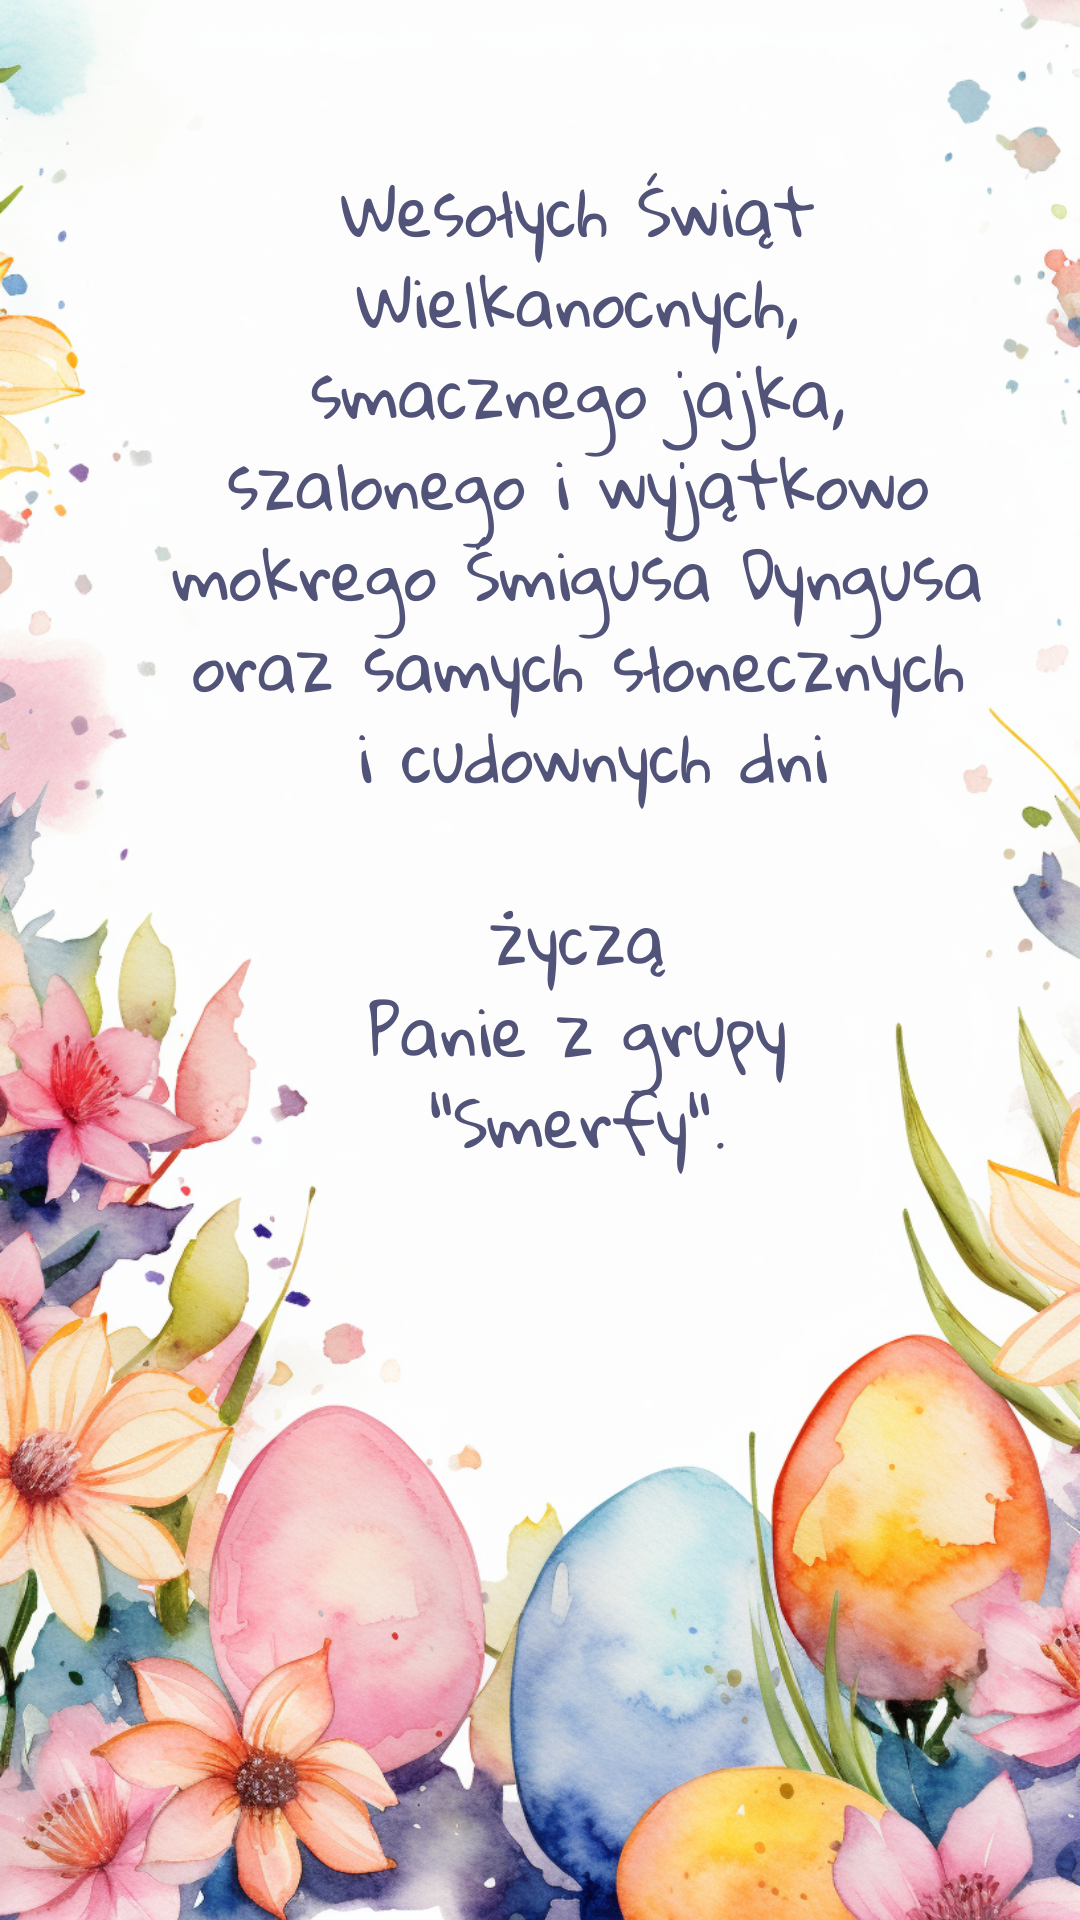 Wesołych Świąt
Wielkanocnych,
smacznego jajka,
szalonego i wyjątkowo
mokrego Śmigusa Dyngusa
oraz samych słonecznych
i cudownych dni
życzą
Panie z grupy
"Smerfy".